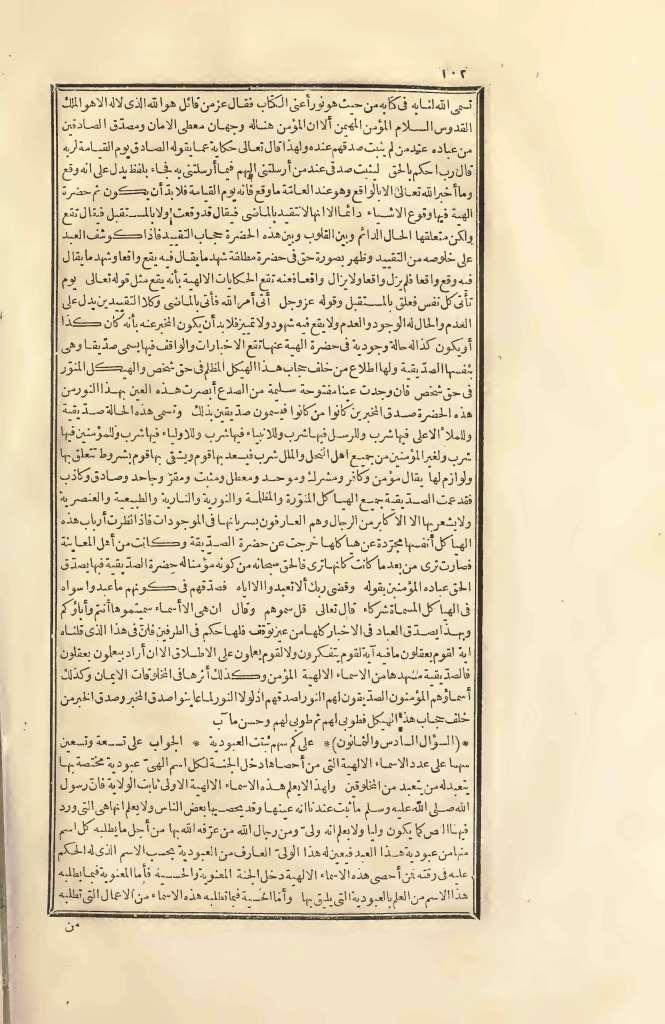 ١٠٢
تسمى الله لنا به فى كتابه من حيث هو نور أعنى الكتاب فقال عز من قائل هو الله الذى لا اله الا هو الملك
القدوس السلام المؤمن المهيمن ألا ان المؤمن هنا له وجهان معطى الامان ومصدّق الصادقين
من عباده عند من لم يثبت صدقهم عنده ولهذا قال تعالى حكاية عما يقوله الصادق يوم القيامة لربه
قال رب احكم بالحق ليثبت صدقى عند من أرسلتنى اليهم فيما أرسلتنى به فجاء بلفظ يدل على انه وقع
وما أخبر الله تعالى الا بالواقع وهو عند العامّة ما وقع فانه يوم القيامة فلا بدّ أن يكون ثم حضرة
الهية فيها وقوع الاشياء دائما لا انها لا تتقيد بالماضى فيقال قد وقعت ولا بالمستقبل فيقال تقع
ولكن متعلقها الحال الدائم وبين القلوب وبين هذه الحضرة حجاب التقييد فاذا كوشف العبد
على خلوصه من التقييد وظهر بصورة حق فى حضرة مطلقة شهد ما يقال فيه يقع واقعا وشهد ما يقال
فيه وقع واقعا فلم يزل واقعا ولا يزال واقعا فعنه تقع الحكايات الالهية بأنه يقع مثل قوله تعالى يوم
تأتى كل نفس فعلق بالمستقبل وقوله عز وجل أتى أمر الله فأتى بالماضى وكلا التقييدين يدل على
العدم والحال له الوجود والعدم ولا يقع فيه شهود ولا تمييز فلا بد أن يكون المخبر عنه بأنه كان كذا
أو يكون كذا له حالة وجودية فى حضرة الهية عنها تقع الاخبارات والواقف فيها يسمى صدّيقا وهى
بنفسها الصدّيقية ولها اطلاع من خلف حجاب هذا الهيكل المظلم فى حق شخص والهيكل المنوّر
فى حق شخص فان وجدت عينا مفتوحة سليمة من الصدع أبصرت هذه العين بهذا النور من
هذه الحضرة صدق المخبرين كانوا من كانوا فيسمون صدّيقين بذلك وتسمى هذه الحالة صدّيقية
وللملأ الاعلى فيها شرب وللرسل فيها شرب وللانبياء فيها شرب وللاولياء فيها شرب وللمؤمنين فيها
شرب ولغير المؤمنين من جميع اهل النحل والملل شرب فيسعد بها قوم ويشقى بها قوم بشروط تتعلق بها
ولوازم لها يقال مؤمن وكافر ومشرك وموحد ومعطل ومثبت ومقرّ وجاحد وصادق وكاذب
فقد عمت الصديقية جميع الهياكل المنوّرة والمظلمة والنورية والنارية والطبيعية والعنصرية
ولا يشعر بها الا الاكابر من الرجال وهم العارفون بسريانها فى الموجودات فاذا نظرت أرباب هذه
الهياكل أنفسها مجرّدة عن هياكلها خرجت عن حضرة الصدّيقية وكانت من أهل المعاينة
فصارت ترى من بعد ما كانت كانها ترى فالحق سبحانه من كونه مؤمنا له حضرة الصديقية فيها يصدّق
الحق عباده المؤمنين بقوله وقضى ربك ألا تعبدوا الا اياه فصدّقهم فى كونهم ما عبدوا سواه
فى الهياكل المسماة شركاء قال تعالى قل سموهم وقال ان هى الا أسماء سميتموها أنتم وآباؤكم
وبهذا يصدّق العباد فى الاخبار كلها من غير توقف فلها حكم فى الطرفين فان فى هذا الذى قلناه
اية لقوم يعقلون ما فيه آية لقوم يتفكرون ولا لقوم يعملون على الاطلاق الا ان أراد بيعلمون يعقلون
فالصدّيقية مشهدها من الاسماء الالهية المؤمن وكذلك أثرها فى المخلوقات الايمان وكذلك
أسماؤهم المؤمنون الصدّيقون لهم النور لصدقهم اذ لولا النور لما عاينوا صدق المخبر وصدق الخبر من
خلف حجاب هذا الهيكل فطوبى لهم ثم طوبى لهم وحسن مآب
* (السؤال السادس والثمانون) * على كم سهم ثبتت العبودية * الجواب على تسعة وتسعين
سهما على عدد الاسماء الالهية التى من أحصاها دخل الجنة لكل اسم الهىّ عبودية مختصة بها
يتعبد له من يتعبد من المخلوقين ولهذا لا يعلم هذه الاسماء الالهية الا ولىّ ثابت الولاية فانّ رسول
الله صلى الله عليه وسلم ما ثبت عندنا انه عينها وقد يحصيها بعض الناس ولا يعلم انها هى التى ورد
فيها النص كما يكون وليا ولا يعلم انه ولىّ ومن رجال الله من عرّفه الله بها من أجل ما يطلبه كل اسم
منها من عبودية هذا العبد فيعين له هذا الولىّ العارف من العبودية بحسب الاسم الذى له الحكم
عليه فى وقته فمن أحصى هذه الاسماء الالهية دخل الجنة المعنوية والحسية فأما المعنوية فبما يطلبه
هذا الاسم من العلم بالعبودية التى يليق بها وأما الحسية فبما تطلبه هذه الاسماء من الاعمال التى تطلبه
من